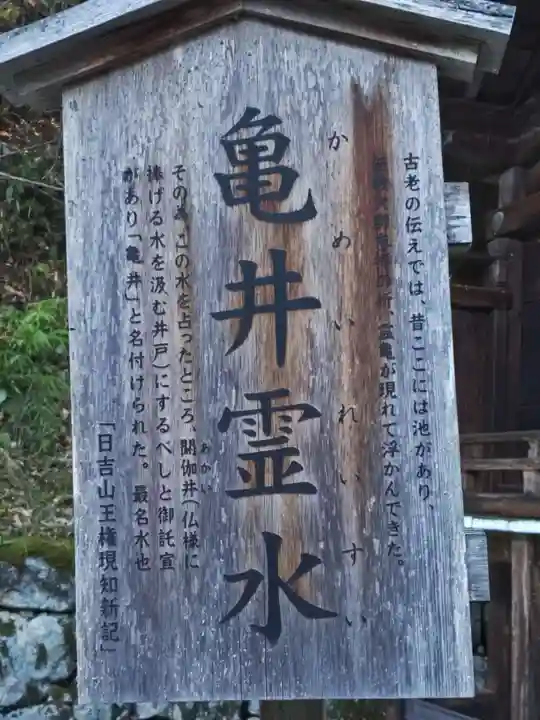 古老の伝えでは、昔ここには池があり、
霊亀が現れて浮かんできた。
かめいれいすい
亀井霊水
この水を占ったところ、閼伽井(仏様に
あかい
捧げる水を汲む井戸)にするべしと御託宣
があり「亀井」と名付けられた。最名水也
「日吉山王権現知新記」